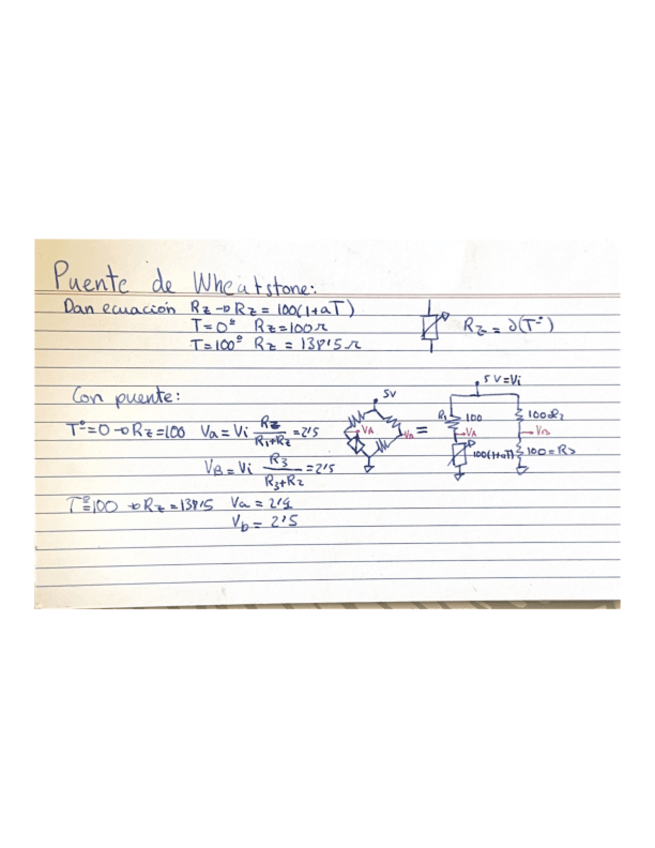 Puente de Wheatstone:
Dan ecuación Rz → Rz = 100(1+aT)
T=0º Rz=100Ω
T=100º Rz = 138'5Ω
Rz = ∂(Tº)
Con puente:
Tº=0 → Rz=100 Va = Vi Rz/R1+Rz = 2'5
VB = Vi R3/R3+R2 = 2'5
Tº=100 → Rz = 138'5 Va = 2'9
Vb = 2'5
5V
VA
VB
=
5V=Vi
R1 100
100=R2
VA
VB
100(1+aT)
100=R3